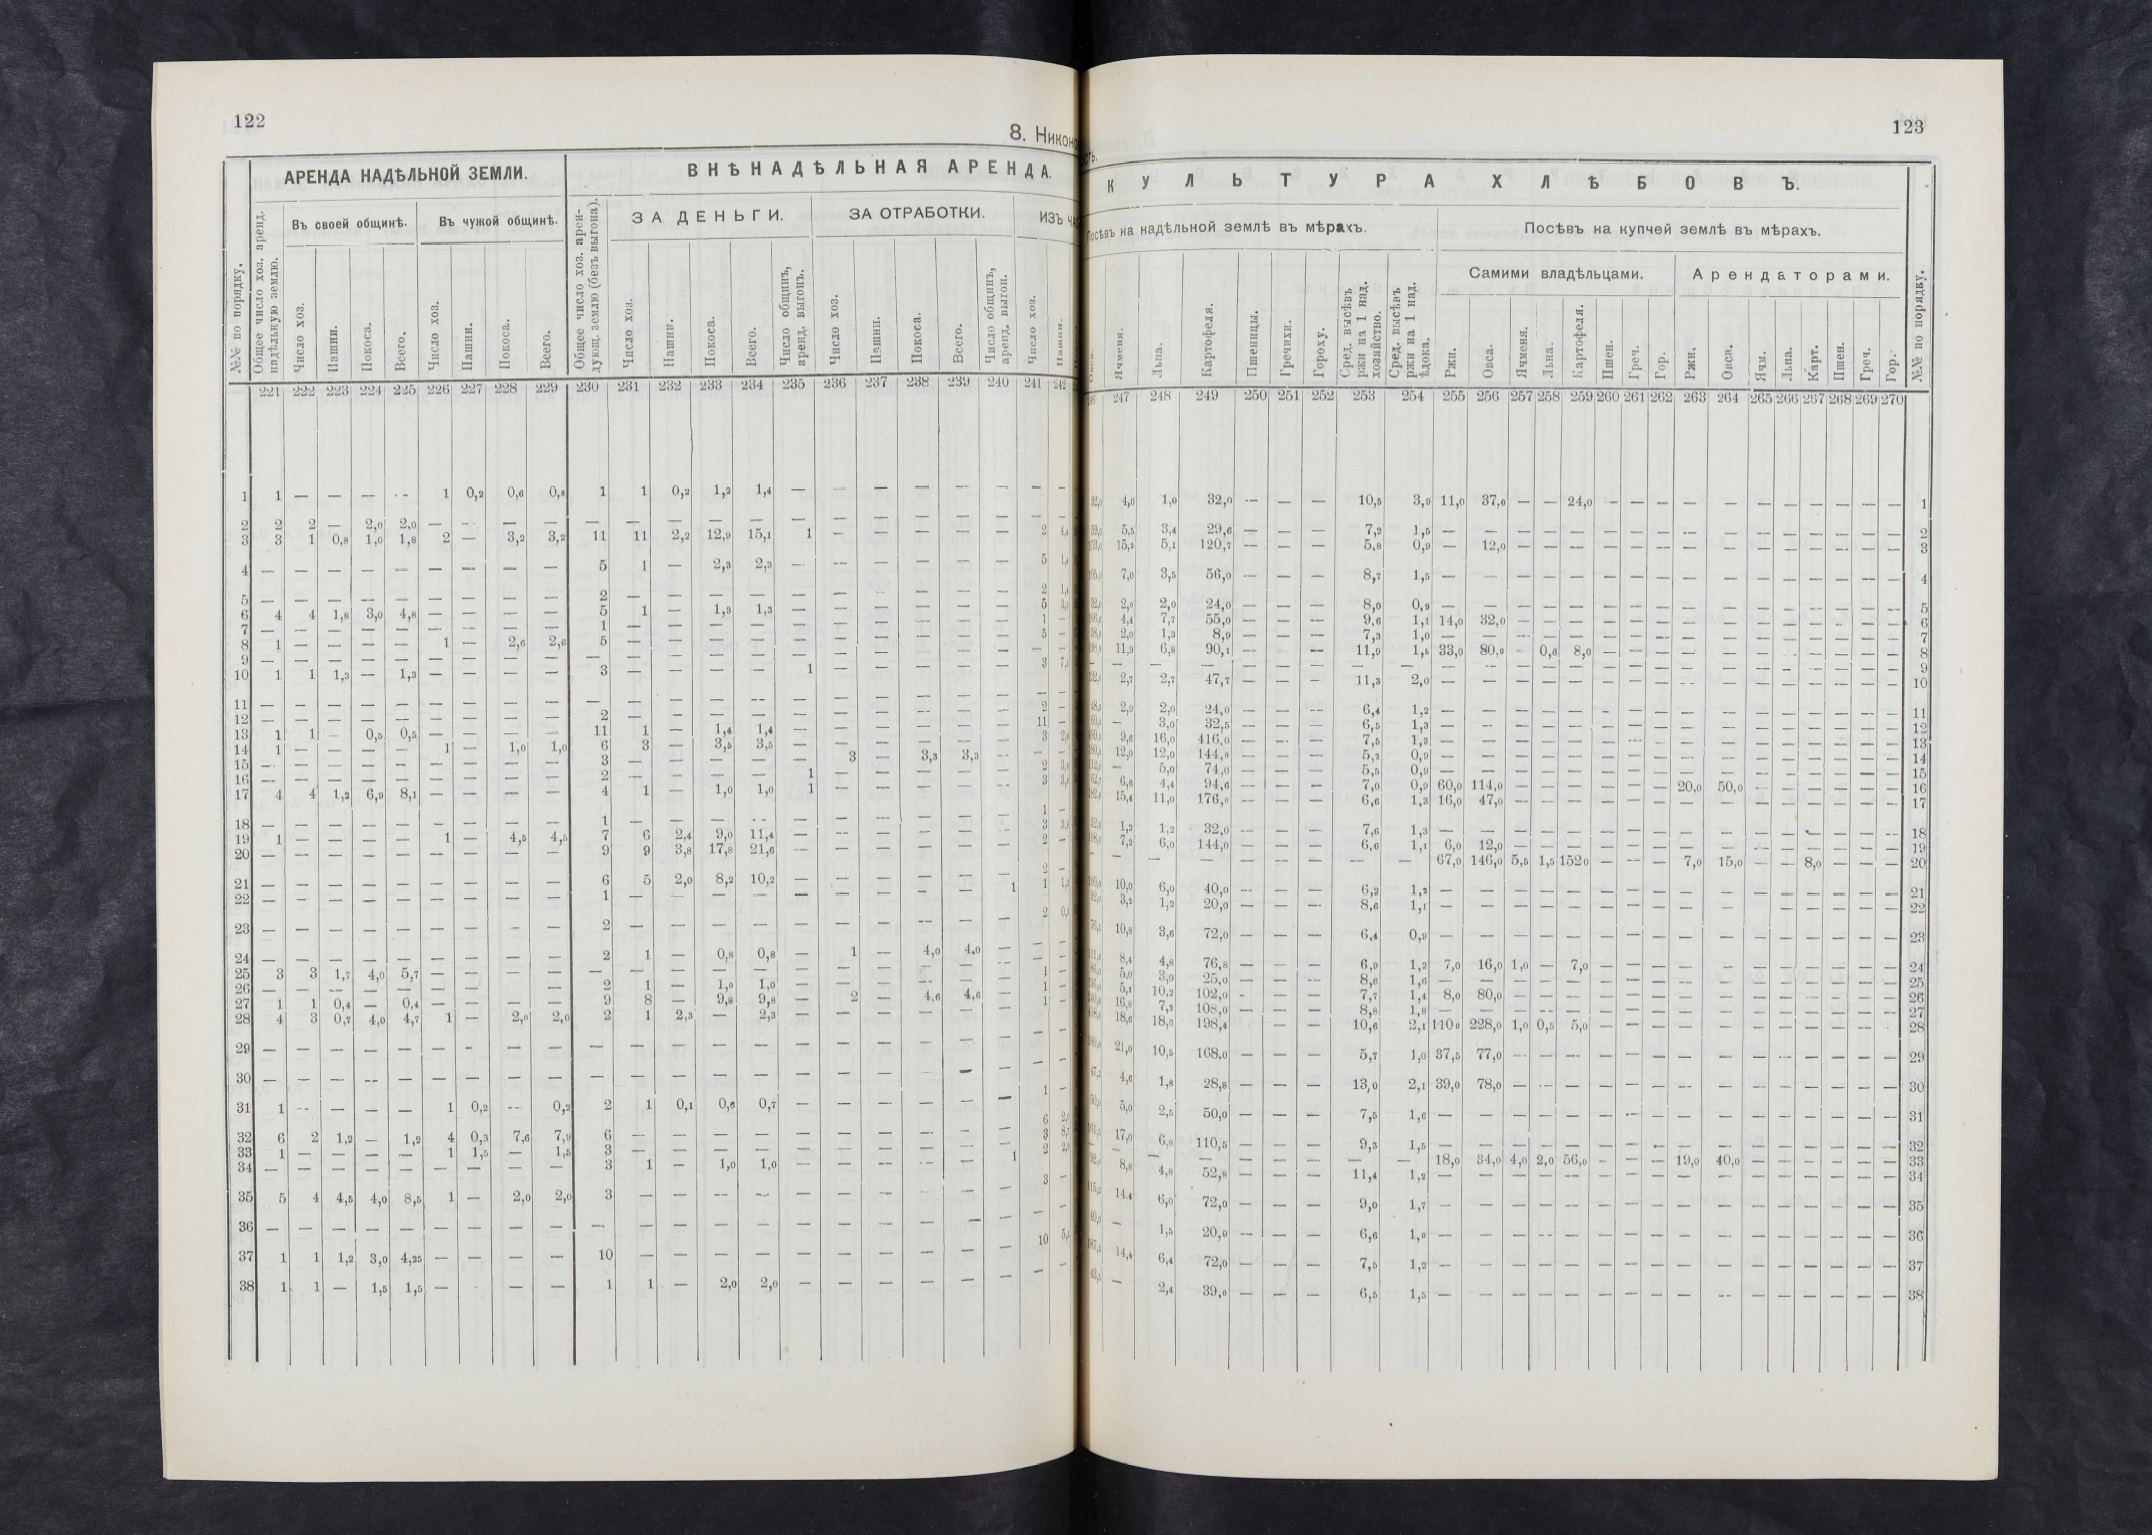 122
8. Никон
АРЕНДА НАДѢЛЬНОЙ ЗЕМЛИ. ВНѢНАДѢЛЬНАЯ АРЕНДА.
Въ своей общинѣ. Въ чужой общинѣ. ЗА ДЕНЬГИ. ЗА ОТРАБОТКИ. ИЗЪ
№№ по порядку. Общее число хоз. аренд. надѣльную землю. Число хоз. Пашни. Покоса. Всего. Число хоз. Пашни. Покоса. Всего. Общее число хоз. арендующ. землю (безъ выгона). Число хоз. Пашни. Покоса. Всего. Число общинъ, аренд. выгонъ. Число хоз. Пашни. Покоса. Всего. Число общинъ, аренд. выгон. Число хоз. Пашни.
221 222 223 224 225 226 227 228 229 230 231 232 233 234 235 236 237 238 239 240 241 242
1 1 — — — — 1 0,2 0,6 0,8 1 1 0,2 1,2 1,4 — — — — — — — —
2 2 2 — 2,0 2,0 — — — — — — — — — — — — — — — —
3 3 1 0,8 1,0 1,8 2 — 3,2 3,2 11 11 2,2 12,9 15,1 1 — — — — — 2
4 — — — — — — — — — 5 1 — 2,3 2,3 — — — — — — 5
5 — — — — — — — — — 2 — — — — — — — — — — 2
6 4 4 1,8 3,0 4,8 — — — — 5 1 — 1,3 1,3 — — — — — — 5
7 — — — — — — — — — 1 — — — — — — — — — — 1 —
8 1 — — — — 1 — 2,6 2,6 5 — — — — — — — — — — 5 —
9 — — — — — — — — — — — — — — — — — — — — — —
10 1 1 1,3 — 1,3 — — — — 3 — — — — 1 — — — — — 3
11 — — — — — — — — — — — — — — — — — — — — — —
12 — — — — — — — — — 2 — — — — — — — — — — 2 —
13 1 1 — 0,5 0,5 — — — — 11 1 — 1,4 1,4 — — — — — — 11 —
14 1 — — — — 1 — 1,0 1,0 6 3 — 3,5 3,5 — 3 — 3,3 3,3 — 3
15 — — — — — — — — — 3 — — — — — — — — — —
16 — — — — — — — — — 2 — — — — 1 — — — — — 2
17 4 4 1,2 6,9 8,1 — — — — 4 1 — 1,0 1,0 1 — — — — — 3
18 — — — — — — — — — 1 — — — — — — — — — — 1 —
19 1 — — — — 1 — 4,5 4,5 7 6 2,4 9,0 11,4 — — — — — — 3
20 — — — — — — — — — 9 9 3,8 17,8 21,6 — — — — — — 2 —
21 — — — — — — — — — 6 5 2,0 8,2 10,2 — — — — — — 2 —
22 — — — — — — — — — 1 — — — — — — — — — 1 1
23 — — — — — — — — — 2 — — — — — — — — — — 2
24 — — — — — — — — — 2 1 — 0,8 0,8 — 1 — 4,0 4,0 — — —
25 3 3 1,7 4,0 5,7 — — — — — — — — — — — — — — — 1 —
26 — — — — — — — — — 2 1 — 1,0 1,0 — — — — — — 1 —
27 1 1 0,4 — 0,4 — — — — 9 8 — 9,8 9,8 — 2 — 4,6 4,6 — 1 —
28 4 3 0,7 4,0 4,7 1 — 2,0 2,0 2 1 2,3 — 2,3 — — — — — — — —
29 — — — — — — — — — — — — — — — — — — — — — —
30 — — — — — — — — — — — — — — — — — — — — — —
31 1 — — — — 1 0,2 — 0,2 2 1 0,1 0,6 0,7 — — — — — — 1 —
32 6 2 1,2 — 1,2 4 0,3 7,6 7,9 6 — — — — — — — — — — 6
33 1 — — — — 1 1,5 — 1,5 3 — — — — — — — — — — 3
34 — — — — — — — — — 3 1 — 1,0 1,0 — — — — — 1 2
35 5 4 4,5 4,0 8,5 1 — 2,0 2,0 3 — — — — — — — — — — 3 —
36 — — — — — — — — — — — — — — — — — — — — — —
37 1 1 1,2 3,0 4,25 — — — — 10 — — — — — — — — — — 10
38 1 1 — 1,5 1,5 — — — — 1 1 — 2,0 2,0 — — — — — — — —
123
КУЛЬТУРА ХЛѢБОВЪ.
Посѣвъ на надѣльной землѣ въ мѣрахъ. Посѣвъ на купчей землѣ въ мѣрахъ.
Самими владѣльцами. Арендаторами.
Ячменя. Льна. Картофеля. Пшеницы. Гречихи. Гороху. Сред. высѣвъ ржи на 1 над. хозяйство. Сред. высѣвъ ржи на 1 над. ѣдока. Ржи. Овса. Ячменя. Льна. Картофеля. Пшен. Греч. Гор. Ржи. Овса. Ячм. Льна. Карт. Пшен. Греч. Гор. №№ по порядку.
247 248 249 250 251 252 253 254 255 256 257 258 259 260 261 262 263 264 265 266 267 268 269 270
4,0 1,0 32,0 — — — 10,5 3,9 11,0 37,0 — — 24,0 — — — — — — — — — — — 1
5,5 3,4 29,6 — — — 7,2 1,5 — — — — — — — — — — — — — — — — 2
15,2 5,1 120,7 — — — 5,8 0,9 — 12,0 — — — — — — — — — — — — — — 3
7,0 3,5 56,0 — — — 8,7 1,5 — — — — — — — — — — — — — — — — 4
2,0 2,0 24,0 — — — 8,0 0,9 — — — — — — — — — — — — — — — — 5
4,4 7,7 55,0 — — — 9,6 1,1 14,0 32,0 — — — — — — — — — — — — — — 6
2,0 1,3 8,9 — — — 7,3 1,0 — — — — — — — — — — — — — — — — 7
11,9 6,8 90,1 — — — 11,9 1,5 33,0 80,0 — 0,8 8,0 — — — — — — — — — — — 8
— — — — — — — — — — — — — — — — — — — — — — — — 9
2,7 2,7 47,7 — — — 11,3 2,0 — — — — — — — — — — — — — — — — 10
2,0 2,0 24,0 — — — 6,4 1,2 — — — — — — — — — — — — — — — — 11
— 3,0 32,5 — — — 6,5 1,3 — — — — — — — — — — — — — — — — 12
9,6 16,0 416,0 — — — 7,5 1,2 — — — — — — — — — — — — — — — — 13
12,0 12,0 144,0 — — — 5,2 0,9 — — — — — — — — — — — — — — — — 14
— 5,0 74,0 — — — 5,5 0,9 — — — — — — — — — — — — — — — — 15
6,6 4,4 94,6 — — — 7,0 0,9 60,0 114,0 — — — — — — 20,0 50,0 — — — — — — 16
15,4 11,0 176,0 — — — 6,6 1,3 16,0 47,0 — — — — — — — — — — — — — — 17
1,2 1,2 32,0 — — — 7,6 1,3 — — — — — — — — — — — — — — — — 18
7,2 6,0 144,0 — — — 6,6 1,1 6,0 12,0 — — — — — — — — — — — — — — 19
— — — — — — — — 67,0 146,0 5,5 1,5 152,0 — — — 7,0 15,0 — — 8,0 — — — 20
10,0 6,0 40,0 — — — 6,2 1,2 — — — — — — — — — — — — — — — — 21
3,2 1,2 20,0 — — — 8,6 1,1 — — — — — — — — — — — — — — — — 22
10,8 3,6 72,0 — — — 6,4 0,9 — — — — — — — — — — — — — — — — 23
8,4 4,8 76,8 — — — 6,9 1,2 7,0 16,0 1,0 — 7,0 — — — — — — — — — — — 24
5,0 3,0 25,0 — — — 8,6 1,6 — — — — — — — — — — — — — — — — 25
5,1 10,2 102,0 — — — 7,7 1,4 8,0 80,0 — — — — — — — — — — — — — — 26
16,8 7,2 108,0 — — — 8,8 1,8 — — — — — — — — — — — — — — — — 27
18,6 18,6 198,4 — — — 10,6 2,1 110,0 228,0 1,0 0,5 5,0 — — — — — — — — — — — 28
21,0 10,5 168,0 — — — 5,7 1,0 37,5 77,0 — — — — — — — — — — — — — — 29
4,6 1,8 28,8 — — — 13,0 2,1 39,0 78,0 — — — — — — — — — — — — — — 30
5,0 2,5 50,0 — — — 7,5 1,6 — — — — — — — — — — — — — — — — 31
17,0 6,8 110,5 — — — 9,3 1,5 — — — — — — — — — — — — — — — — 32
— — — — — — — — 18,0 34,0 4,0 2,0 56,0 — — — 19,0 40,0 — — — — — — 33
8,8 4,8 52,8 — — — 11,4 1,2 — — — — — — — — — — — — — — — — 34
14,4 6,0 72,0 — — — 9,0 1,7 — — — — — — — — — — — — — — — — 35
— 1,5 20,0 — — — 6,6 1,0 — — — — — — — — — — — — — — — — 36
14,4 6,4 72,0 — — — 7,5 1,2 — — — — — — — — — — — — — — — — 37
— 2,4 39,0 — — — 6,5 1,5 — — — — — — — — — — — — — — — — 38